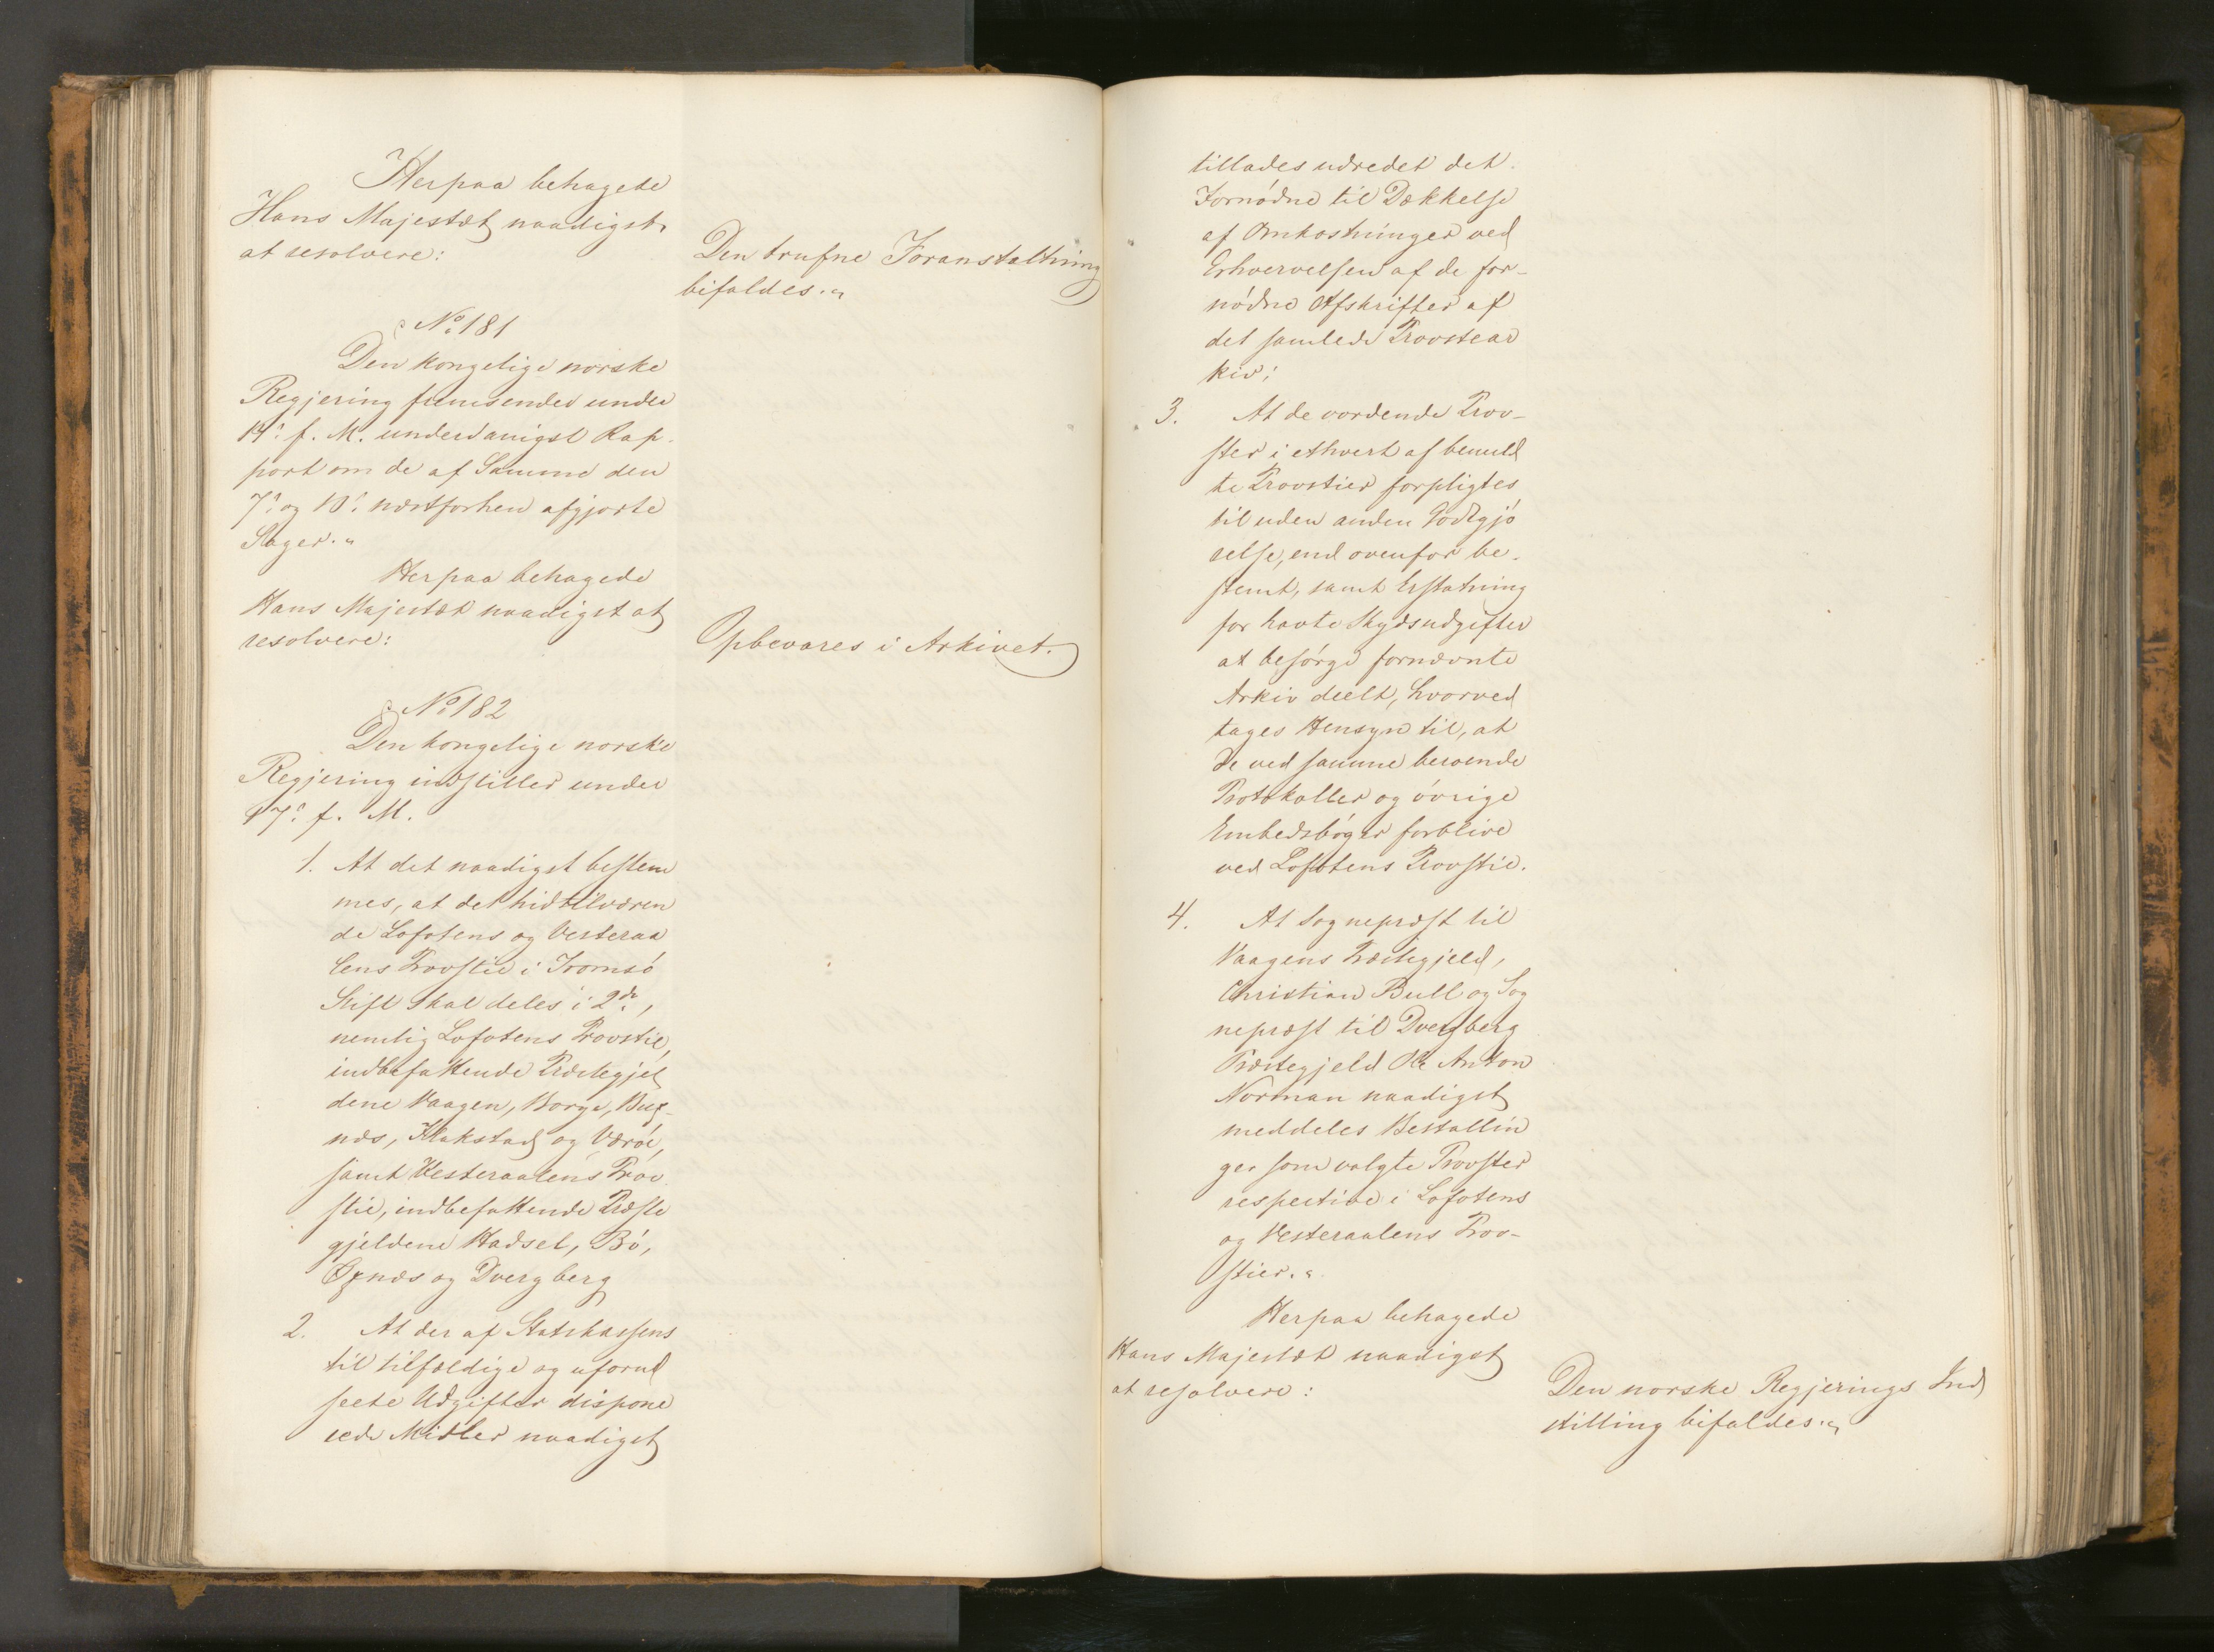 Herpaa behagede
Hans Majestæt naadigst
at resolvere:
Den trufne Foranstaltning
bifaldes.
No 181
Den kongelige norske
Regjering fremsender under
14de f. M. underdanigst Rap-
port om de af Samme den
7de og 10de næstforhen afgjorte
Sager.
Herpaa behagede
Hans Majestæt naadigst at
resolvere:
Opbevares i Arkivet.
No 182
Den kongelige norske
Regjering indstiller under
17de f. M.
1. At det naadigst bestem
mes, at det hidtilværen
de Lofotens og Vesteraa
lens Provstie i Tromsö
Stift skal deles i 2de,
nemlig Lofotens Provstie,
indbefattende Præstegjel
dene Vaagen, Borge, Bux-
næs, Flakstad og Værøe,
samt Vesteraalens Prov
stie, indbefattende Præste
gjeldene Hadsel, Bö,
Øxnæs og Dverg berg
2. At der af Statskassens
til tilfældige og uforud
seete Udgifter dispone
rede Midler naadigst
tillades udredet det
Fornödne til Dækkelse
af Omkostninger ved
Erhvervelsen af de for-
nödne Afskrifter af
det samlede Provstear
kiv;
3. At de vordende Prov-
ster i ethvert af bemeld
te Provstier forpligtes
til uden anden Godtgjö
relse, end ovenfor be-
stemt, samt Erstatning
for havte Skydsudgifter
at besørge fornævnte
Arkiv deelt, hvorved
tages Hensyn til, at
de ved samme beroende
Protokoller og övrige
Embedsböger forblive
ved Lofotens Provstie.
4. At Sognepræst til
Vaagens Præstegjeld,
Christian Bull og Sog
nepræst til Dvergberg
Præstegjeld Ole Anton
Norman naadigst
meddeles Bestallin
ger som valgte Provster
respective i Lofotens
og Vesteraalens Prov-
stier.
Herpaa behagede
Hans Majestæt naadigst
at resolvere:
Den norske Regjerings Ind
stilling bifaldes.